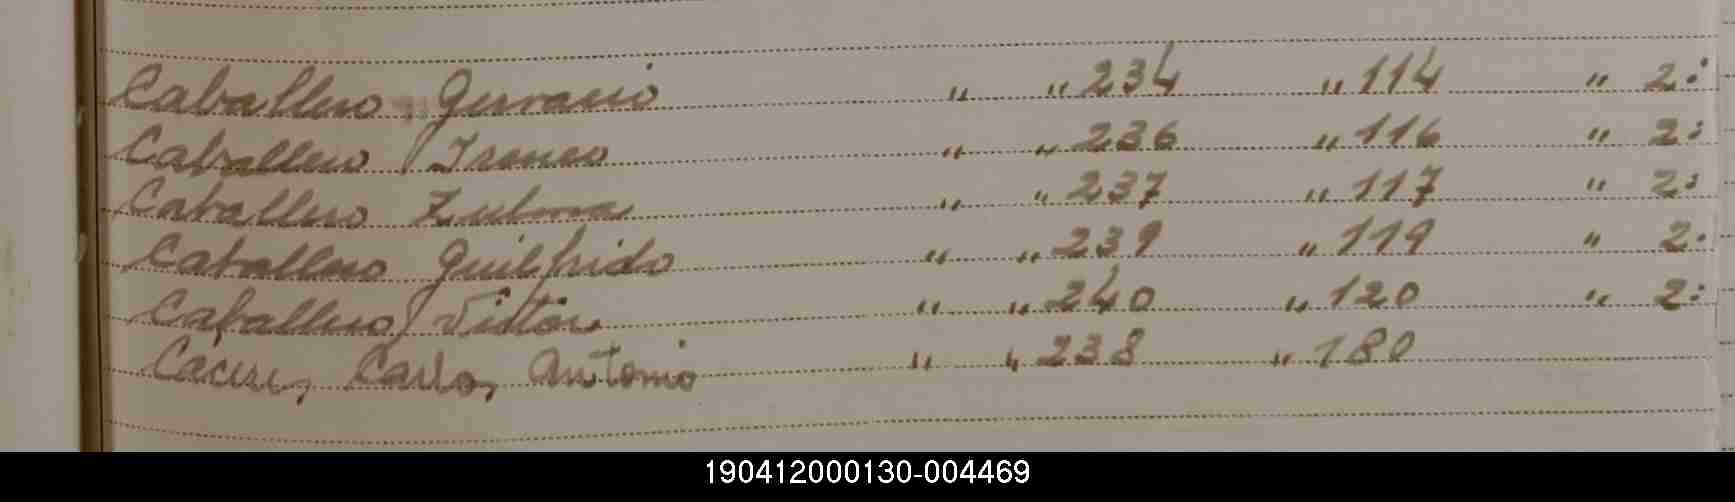 Caballero Gervacio " " 234 " 114 " 2:
Caballero Ireneo " " 236 " 116 " 2:
Caballero Zulma " " 237 " 117 " 2:
Caballero Guilfrido " " 239 " 119 " 2.
Caballero Victor " " 240 " 120 " 2:
Caceres, Carlos, Antonio " " 238 " 180
190412000130-004469